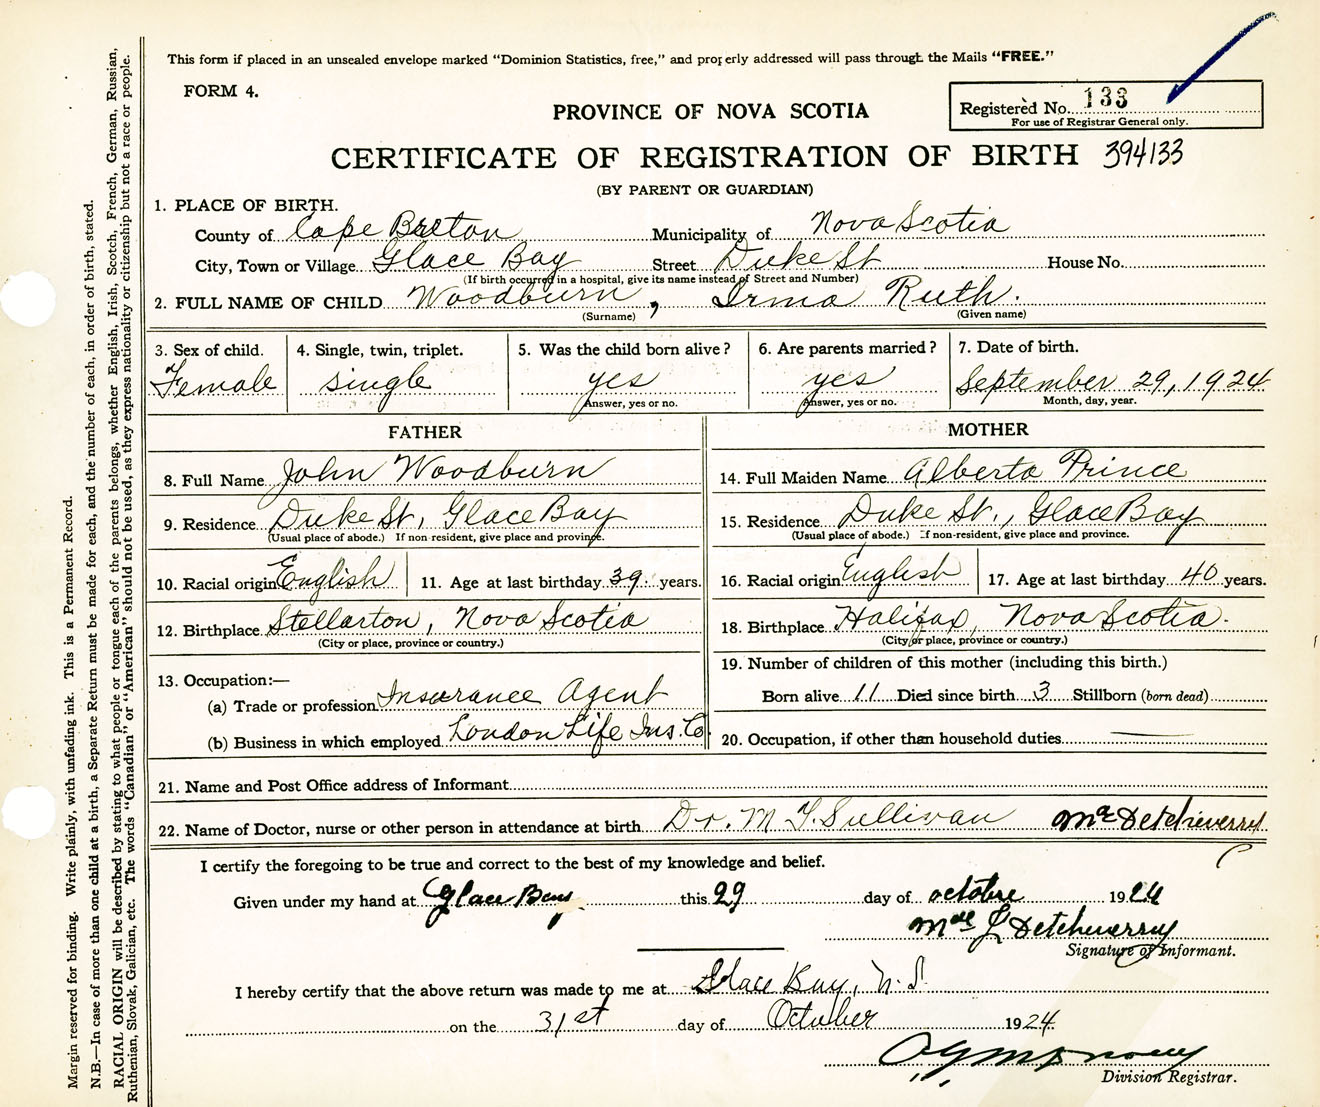 This form if placed in an unsealed envelope marked "Dominion Statistics, free," and properly addressed will pass through the Mails "FREE."
FORM 4.
Registered No. 133
For use of Registrar General only.
PROVINCE OF NOVA SCOTIA
CERTIFICATE OF REGISTRATION OF BIRTH 394133
(BY PARENT OR GUARDIAN)
1. PLACE OF BIRTH.
County of Cape Breton Municipality of Nova Scotia
City, Town or Village Glace Bay Street Duke St House No.
(If birth occurred in a hospital, give its name instead of Street and Number)
2. FULL NAME OF CHILD Woodburn, Irma Ruth.
(Surname) (Given name)
3. Sex of child. 4. Single, twin, triplet. 5. Was the child born alive? 6. Are parents married? 7. Date of birth.
Female single yes yes September 29, 1924
Answer, yes or no. Answer, yes or no. Month, day, year.
FATHER
8. Full Name John Woodburn
9. Residence Duke St, Glace Bay
(Usual place of abode.) If non-resident, give place and province.
10. Racial origin English 11. Age at last birthday 39 years.
12. Birthplace Stellarton, Nova Scotia
(City or place, province or country.)
13. Occupation:—
(a) Trade or profession Insurance Agent
(b) Business in which employed London Life Ins. Co.
MOTHER
14. Full Maiden Name Alberta Prince
15. Residence Duke St., Glace Bay
(Usual place of abode.) If non-resident, give place and province.
16. Racial origin English 17. Age at last birthday 40 years.
18. Birthplace Halifax, Nova Scotia.
(City or place, province or country.)
19. Number of children of this mother (including this birth.)
Born alive 11 Died since birth 3 Stillborn (born dead)
20. Occupation, if other than household duties
21. Name and Post Office address of Informant
22. Name of Doctor, nurse or other person in attendance at birth Dr. M T. Sullivan Detcheverry
I certify the foregoing to be true and correct to the best of my knowledge and belief.
Given under my hand at Glace Bay this 29 day of octobre 1924
L Detcheverry
Signature of Informant.
I hereby certify that the above return was made to me at Glace Bay, N.S.
on the 31st day of October 1924
Division Registrar.
Margin reserved for binding. Write plainly, with unfading ink. This is a Permanent Record.
N.B.—In case of more than one child at a birth, a Separate Return must be made for each, and the number of each, in order of birth, stated.
RACIAL ORIGIN will be described by stating to what people or tongue each of the parents belongs, whether English, Irish, Scotch, French, German, Russian,
Ruthenian, Slovak, Galician, etc. The words "Canadian" or "American" should not be used, as they express nationality or citizenship but not a race or people.